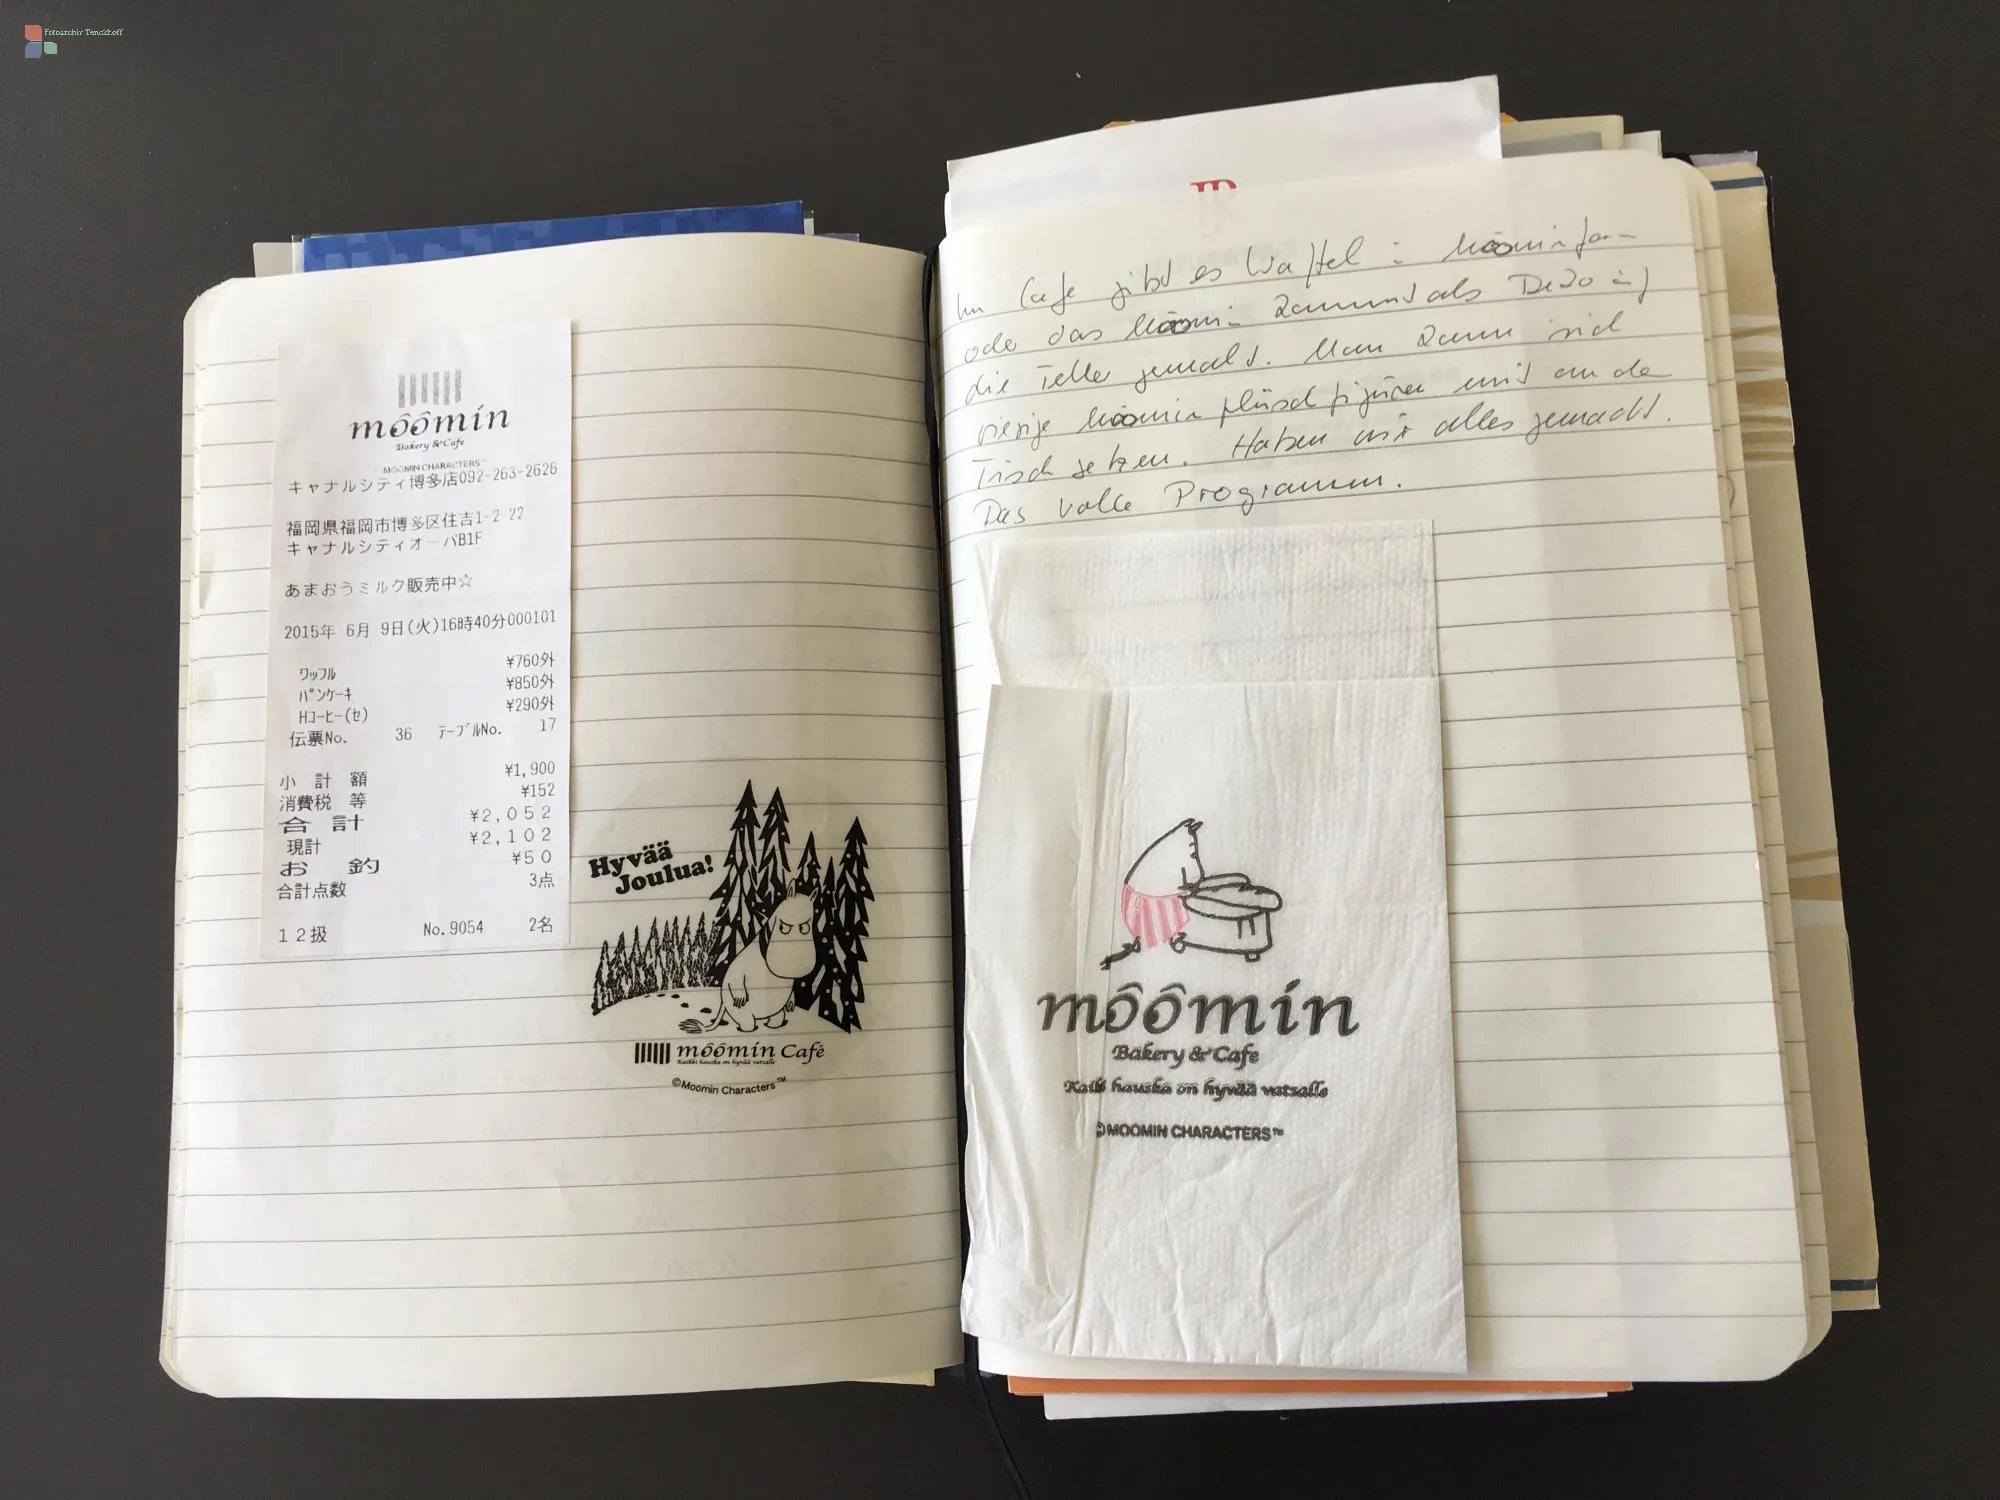 Fotoarchiv Tenckhoff
môômin
Bakery & Cafe
©MOOMIN CHARACTERS™
キャナルシティ博多店092-263-2626
福岡県福岡市博多区住吉1-2-22
キャナルシティオーパB1F
あまおうミルク販売中☆
2015年 6月 9日(火)16時40分000101
ワッフル ¥760外
パンケーキ ¥850外
Hコーヒー(セ) ¥290外
伝票No. 36 テーブルNo. 17
小 計 額 ¥1,900
消費税 等 ¥152
合 計 ¥2,052
現計 ¥2,102
お 釣 ¥50
合計点数 3点
12扱 No.9054 2名
Hyvää
Joulua!
môômin Café
Kaikki hauska on hyvää vatsalle
©Moomin Characters™
Im Cafe gibt es Waffel in Moominform
oder das Moomin kommt als Deko auf
die Teller gemalt. Man kann sich
riesige Moomin plüschfiguren mit an den
Tisch setzen. Haben wir alles gemacht.
Das volle Programm.
môômin
Bakery & Cafe
Kaikki hauska on hyvää vatsalle
©MOOMIN CHARACTERS™